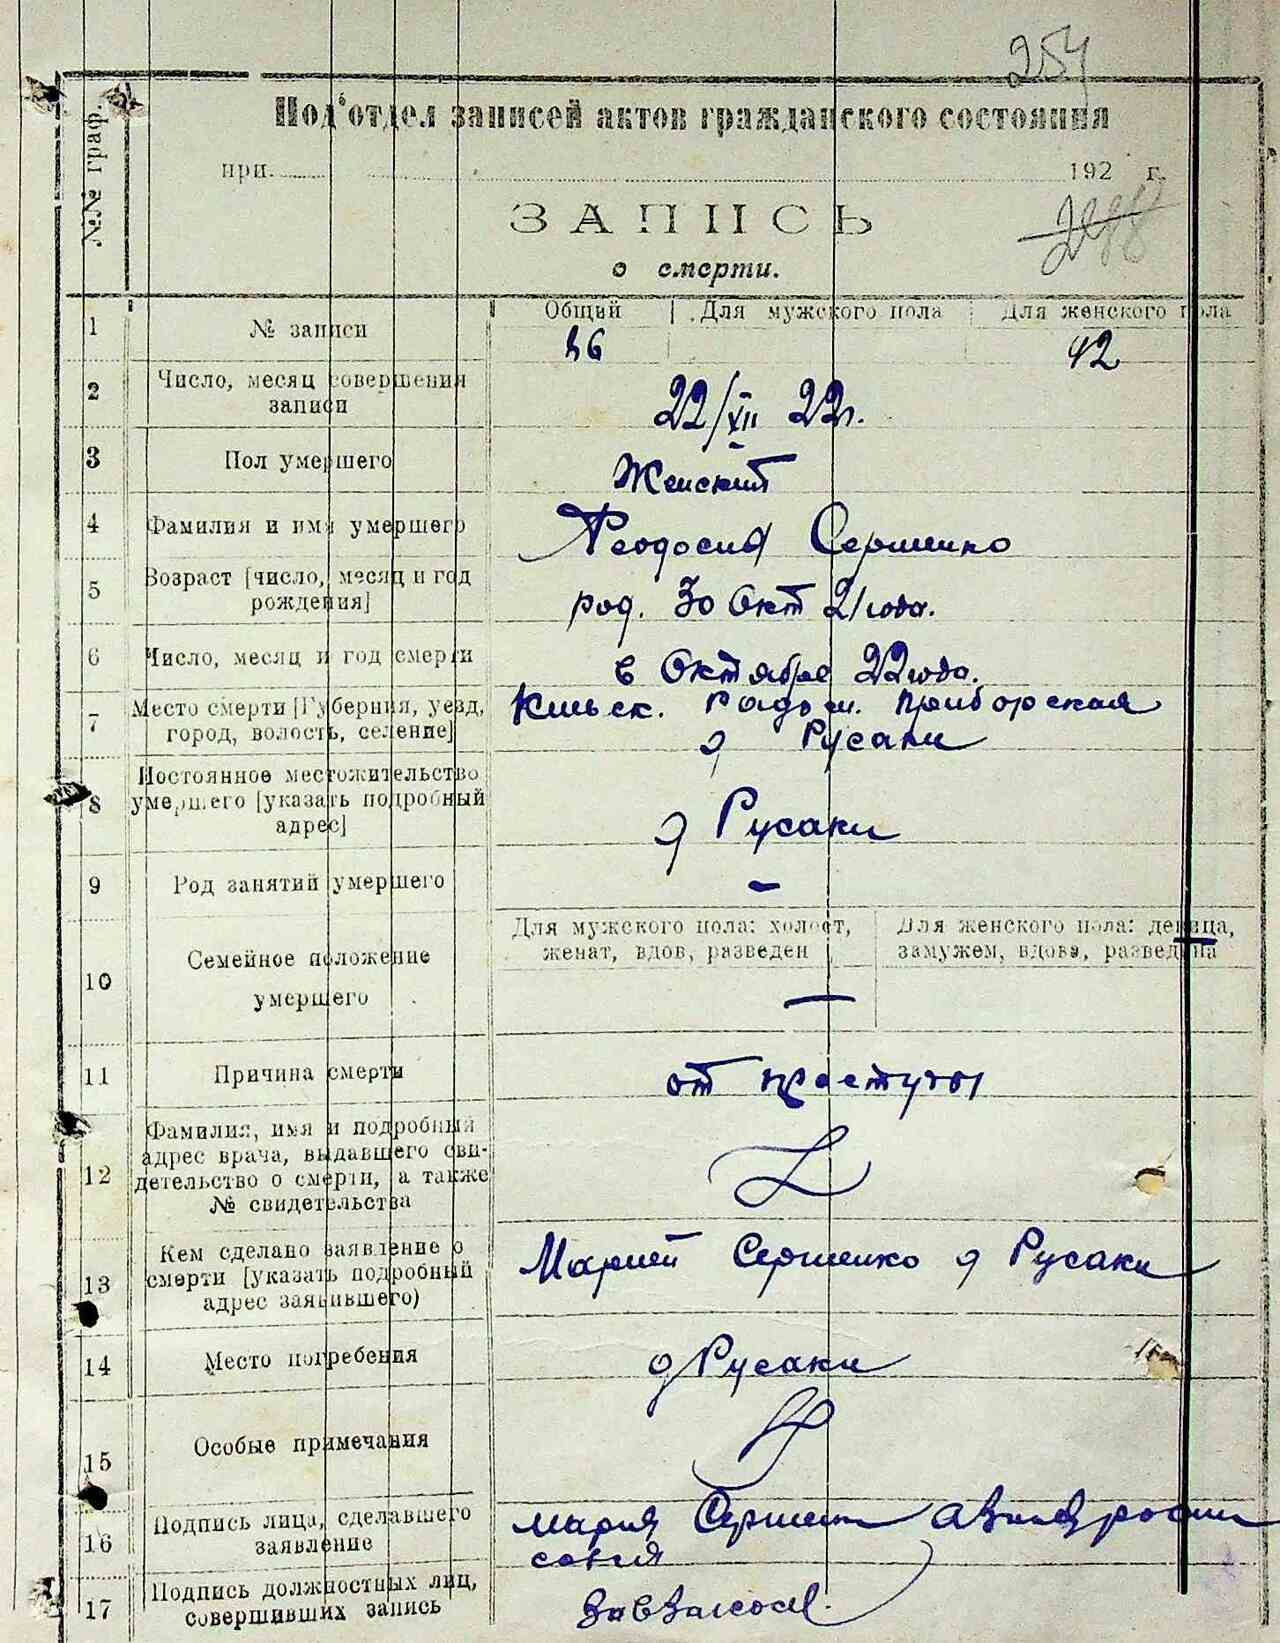 254
Под'отдел записей актов гражданского состояния
№№ граф.
при 192 г.
ЗАПИСЬ
о смерти.
1 № записи Общий Для мужского пола Для женского пола
86 42
2 Число, месяц совершения записи
22/XII 22г.
3 Пол умершего
Женский
4 Фамилия и имя умершего
Феодосия Сершенко
5 Возраст [число, месяц и год рождения]
род. 30 Окт 21 года.
6 Число, месяц и год смерти
в Октябре 22 года.
7 Место смерти [Губерния, уезд, город, волость, селение]
Киевск. Радом. Приборская
д Русаки
8 Постоянное местожительство умершего [указать подробный адрес]
д Русаки
9 Род занятий умершего
–
10 Семейное положение умершего
Для мужского пола: холост, женат, вдов, разведен
Для женского пола: девица, замужем, вдова, разведена
—
11 Причина смерти
от простуды
12 Фамилия, имя и подробный адрес врача, выдавшего свидетельство о смерти, а также № свидетельства
13 Кем сделано заявление о смерти [указать подробный адрес заявившего)
Марией Сершенко д Русаки
14 Место погребения
д Русаки
15 Особые примечания
16 Подпись лица, сделавшего заявление
Мария Сершен
17 Подпись должностных лиц, совершивших запись